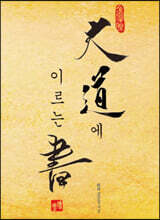 大道에
이르는
書